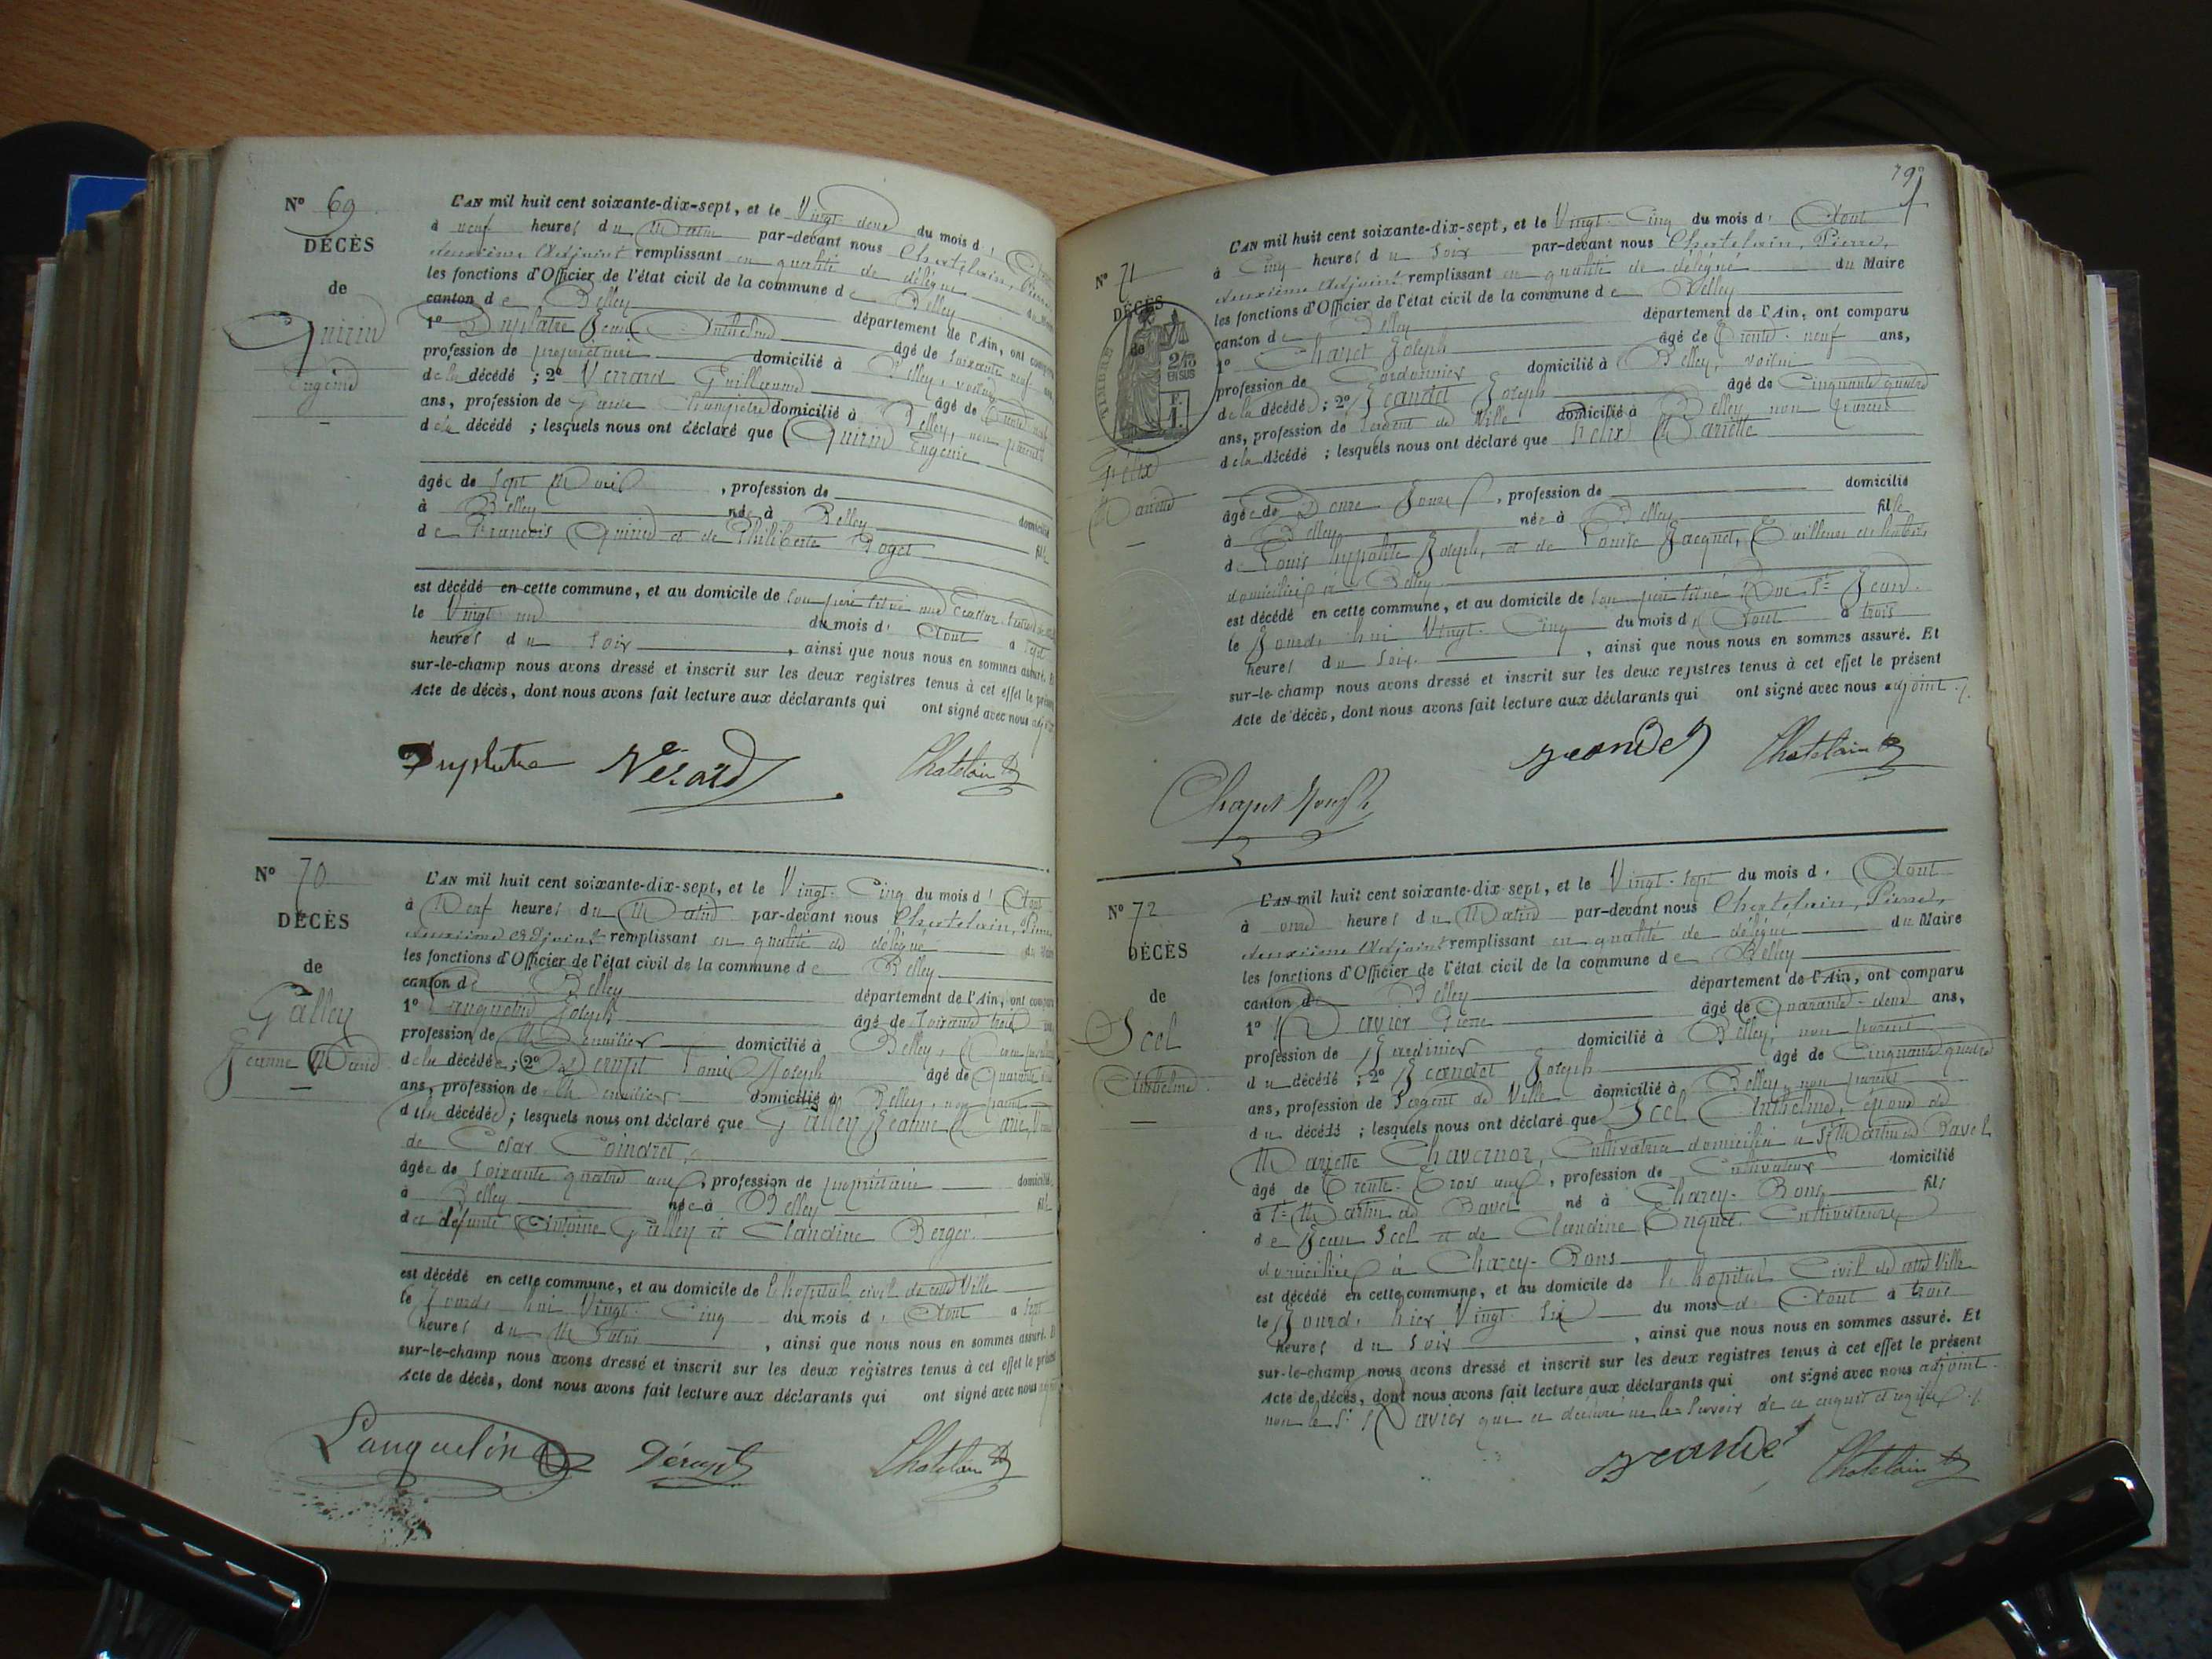 Nº 69
DÉCÈS
de
Quinind
Eugénie
L'AN mil huit cent soixante-dix-sept, et le Vingt deux du mois d'
à neuf heures du Matin par-devant nous Chatelain, Pierre
deuxième Adjoint remplissant en qualité de délégué
les fonctions d'Officier de l'état civil de la commune de Belley
canton de Belley département de l'Ain, ont comparu
1º Duplatre Jean Anthelme âgé de soixante neuf
profession de propriétaire domicilié à Belley, voisin
de la décédé ; 2º Guillaume âgé de
ans, profession de Garde Champêtre domicilié à Belley, non parent
de la décédé ; lesquels nous ont déclaré que Eugénie
âgée de sept Mois , profession de domicilié
à Belley née à Belley fille
de François et de Philiberte Roget
est décédé en cette commune, et au domicile de son père
le Vingt un du mois d' Aout à sept
heures du soir , ainsi que nous nous en sommes assuré. Et
sur-le-champ nous avons dressé et inscrit sur les deux registres tenus à cet effet le présent
Acte de décès, dont nous avons fait lecture aux déclarants qui ont signé avec nous
Duplatre Chatelain
Nº 70
DÉCÈS
de
Galley
Jeanne Marie
L'AN mil huit cent soixante-dix-sept, et le Vingt-Cinq du mois d' Aout
à Neuf heures du Matin par-devant nous Chatelain, Pierre
deuxième Adjoint remplissant en qualité de délégué
les fonctions d'Officier de l'état civil de la commune de Belley
canton de Belley département de l'Ain, ont comparu
1º Lanquetin Joseph âgé de soixante trois
profession de domicilié à Belley,
de la décédée ; 2º Joseph âgé de Quarante
ans, profession de domicilié à Belley, non parent
de la décédée ; lesquels nous ont déclaré que Galley Jeanne Marie,
de César Coindret,
âgée de soixante quatre ans, profession de propriétaire domicilié
à Belley née à Belley fille
de défunts Antoine Galley et Claudine Berger.
est décédé en cette commune, et au domicile de l'hopital civil de cette Ville
le Jourd'hui Vingt-Cinq du mois d' Aout à sept
heures du Matin , ainsi que nous nous en sommes assuré. Et
sur-le-champ nous avons dressé et inscrit sur les deux registres tenus à cet effet le présent
Acte de décès, dont nous avons fait lecture aux déclarants qui ont signé avec nous
Lanquetin Chatelain
Nº 71
DÉCÈS
de
TIMBRE
2/10
EN SUS
Felix
L'AN mil huit cent soixante-dix-sept, et le Vingt-Cinq du mois d' Aout
à Cinq heures du Soir par-devant nous Chatelain, Pierre,
deuxième Adjoint remplissant en qualité de délégué du Maire
les fonctions d'Officier de l'état civil de la commune de Belley
canton de Belley département de l'Ain, ont comparu
1º Joseph âgé de Trente-neuf ans,
profession de Cordonnier domicilié à Belley, voisin
de la décédé ; 2º Jeandet Joseph âgé de Cinquante quatre
ans, profession de Sergent de Ville domicilié à Belley, non parent
de la décédé ; lesquels nous ont déclaré que Felix Mariette
âgée de Jours , profession de domicilié
à Belley née à Belley fille
de Louis hyppolite Joseph, et de Louise Jacquet, Tailleur
domiciliés à Belley
est décédé en cette commune, et au domicile de son père Rue St Jean.
le Jourd'hui Vingt-Cinq du mois d' Aout à trois
heures du Soir. , ainsi que nous nous en sommes assuré. Et
sur-le-champ nous avons dressé et inscrit sur les deux registres tenus à cet effet le présent
Acte de décès, dont nous avons fait lecture aux déclarants qui ont signé avec nous adjoint.
Jeandet Chatelain
Nº 72
DÉCÈS
de
Scel
Anthelme
L'AN mil huit cent soixante-dix-sept, et le Vingt-sept du mois d' Aout
à onze heures du Matin par-devant nous Chatelain, Pierre,
deuxième Adjoint remplissant en qualité de délégué du Maire
les fonctions d'Officier de l'état civil de la commune de Belley
canton de Belley département de l'Ain, ont comparu
1º Davier Pierre âgé de Quarante-deux ans,
profession de Jardinier domicilié à Belley, non parent
du décédé ; 2º Jeandet Joseph âgé de Cinquante quatre
ans, profession de Sergent de Ville domicilié à Belley, non parent
du décédé ; lesquels nous ont déclaré que Scel Anthelme, époux de
Mariette Chavernoz, Cultivatrice domiciliée à St Martin de Bavel
âgé de Trente-Trois ans , profession de Cultivateur domicilié
à St Martin de Bavel né à Chazey-Bons fils
de Jean Scel et de Claudine Cultivateurs
domiciliés à Chazey-Bons
est décédé en cette commune, et au domicile de l'hopital Civil de cette Ville
le Jourd'hier Vingt Six du mois d' Aout à trois
heures du Soir , ainsi que nous nous en sommes assuré. Et
sur-le-champ nous avons dressé et inscrit sur les deux registres tenus à cet effet le présent
Acte de décès, dont nous avons fait lecture aux déclarants qui ont signé avec nous adjoint.
non le Sr Davier qui a déclaré ne le savoir de ce enquis et requis
Jeandet Chatelain